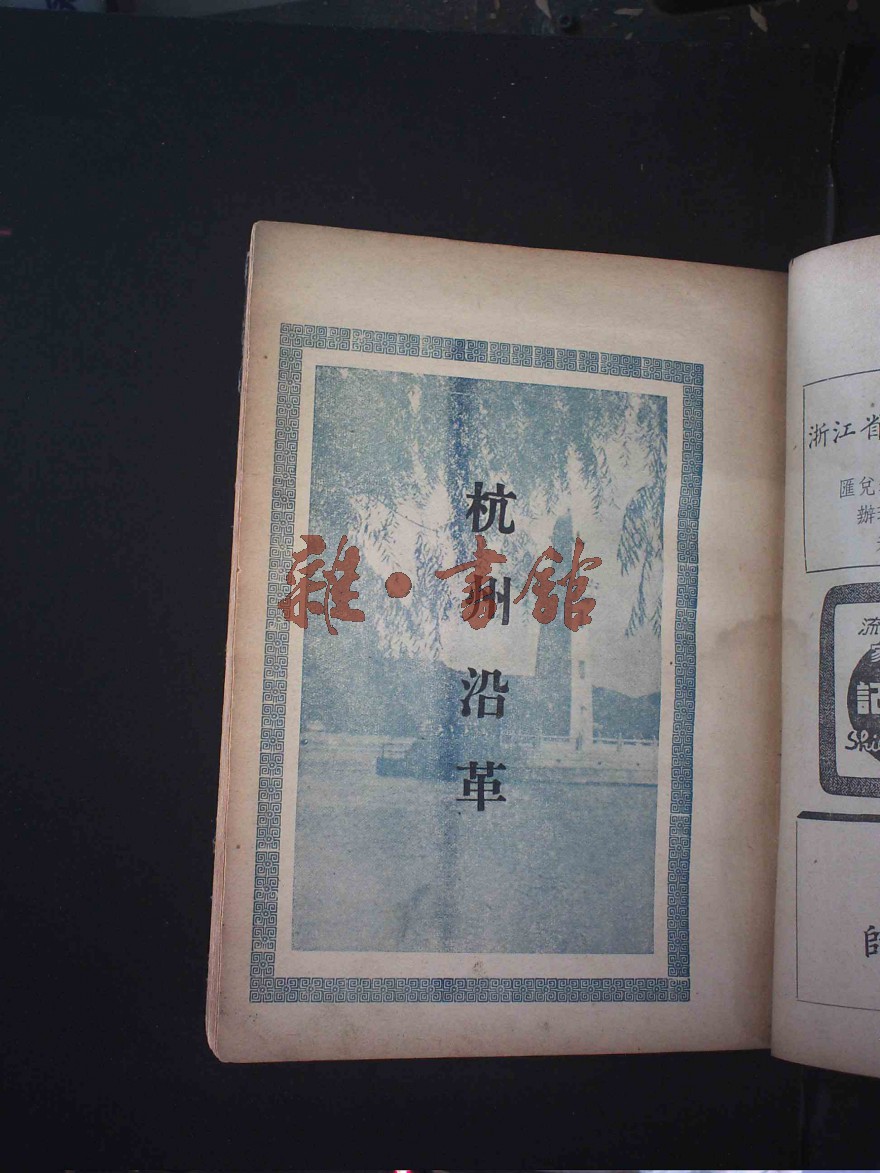 杭州沿革
雜·書館
浙江省
匯兌
辦
流
記
Shi
師